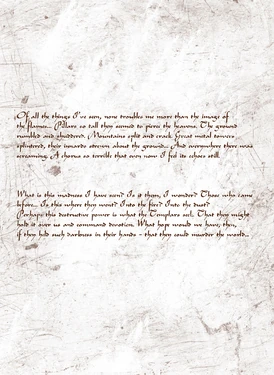 Of all the things I've seen, none troubles me more than the image of
the flames... Pillars so tall they seemed to pierce the heavens. The ground
rumbled and shuddered. Mountains split and crack. Great metal towers
splintered, their innards strewn about the ground... And everywhere there was
screaming. A chorus so terrible that even now I feel its echoes still.
What is this madness I have seen? Is it them, I wonder? Those who came
before... Is this where they went? Into the fire? Into the dust?
Perhaps this destructive power is what the Templars seek. That they might
hold it over us and command devotion. What hope would we have, then,
if they had such darkness in their hands - that they could murder the world...